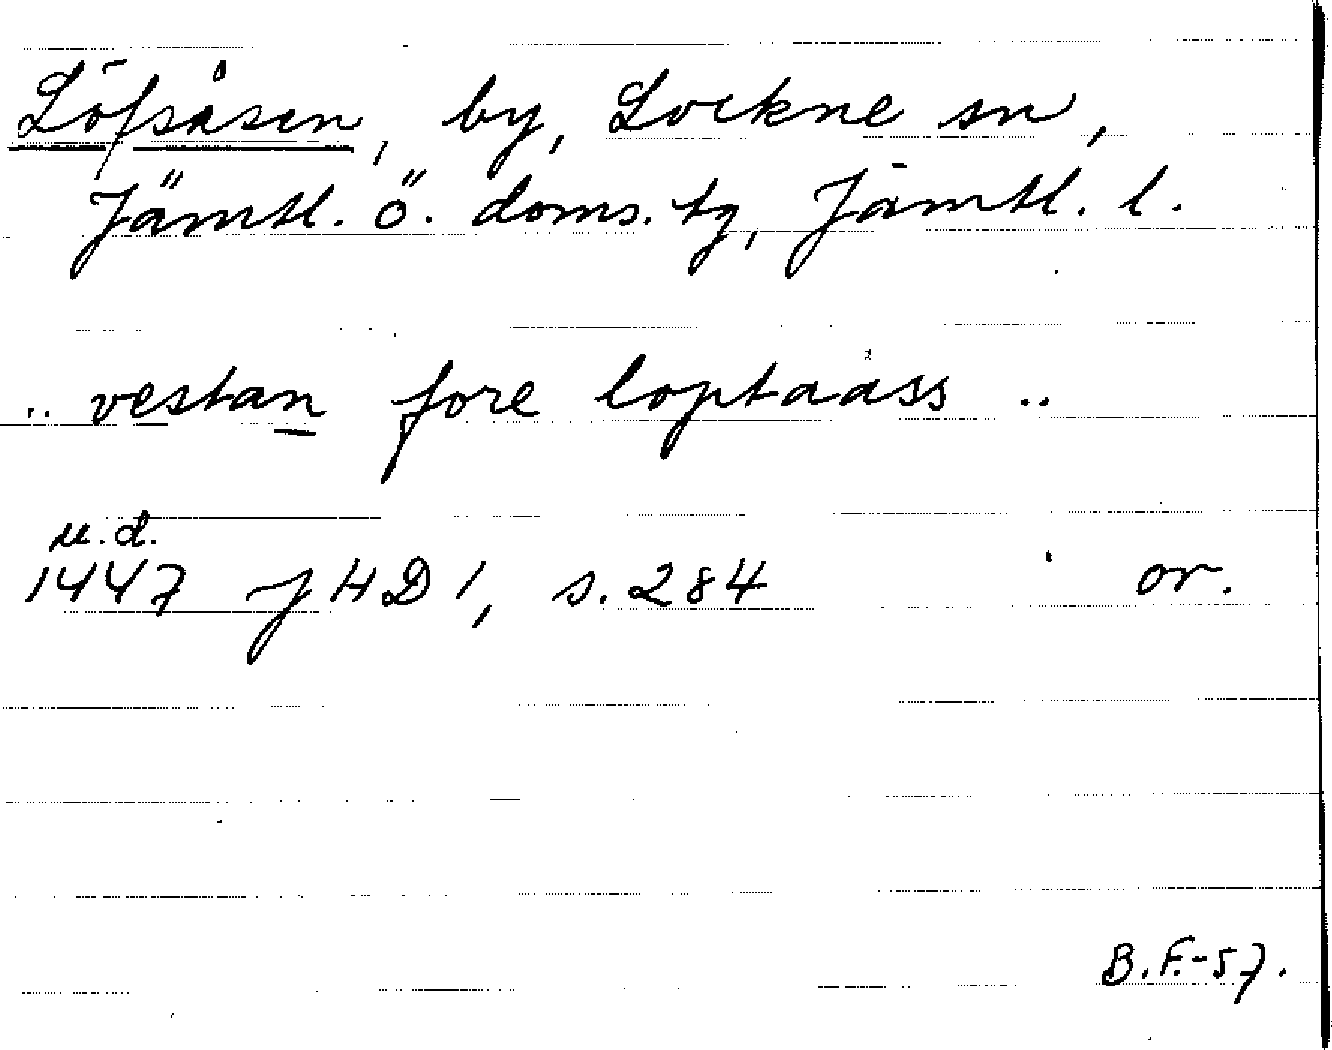 Löfsåsen, by, Lockne sn,
Jämtl. ö. doms. tg, Jämtl. l.
.. vestan fore loptaass ..
u.d.
1447 JHD 1, s. 284 or.
B.F.-57.